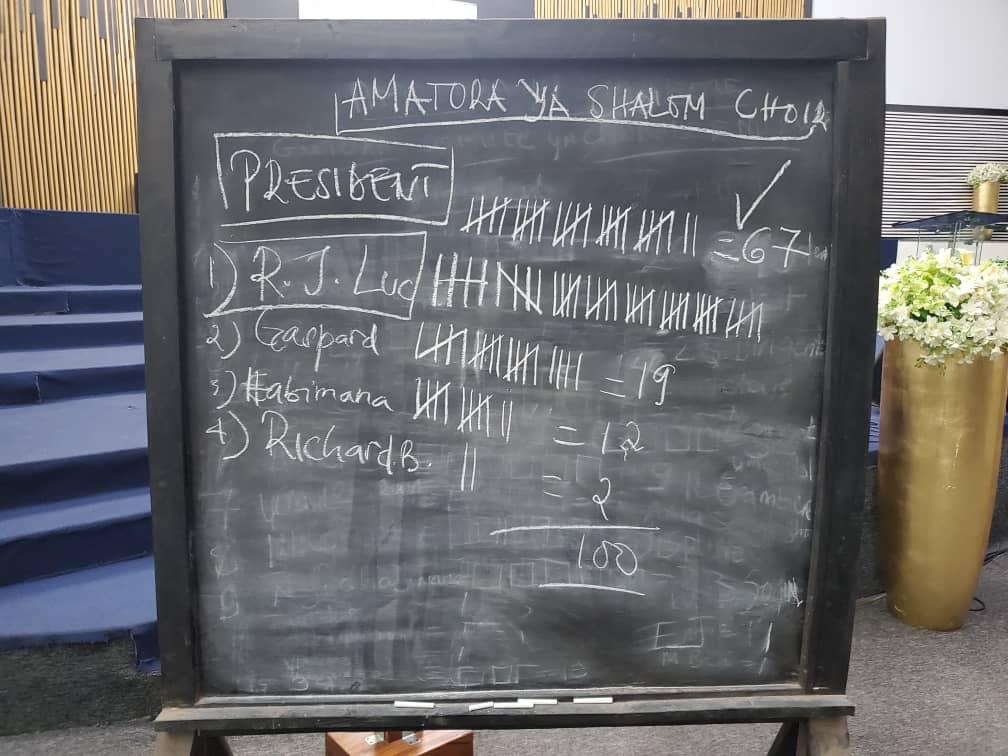 AMATORA YA SHALOM CHOIR
PRESIDENT
= 67
1) R. J. Luc
2) Gaspard = 19
3) Habimana = 12
4) Richard.B. = 2
100